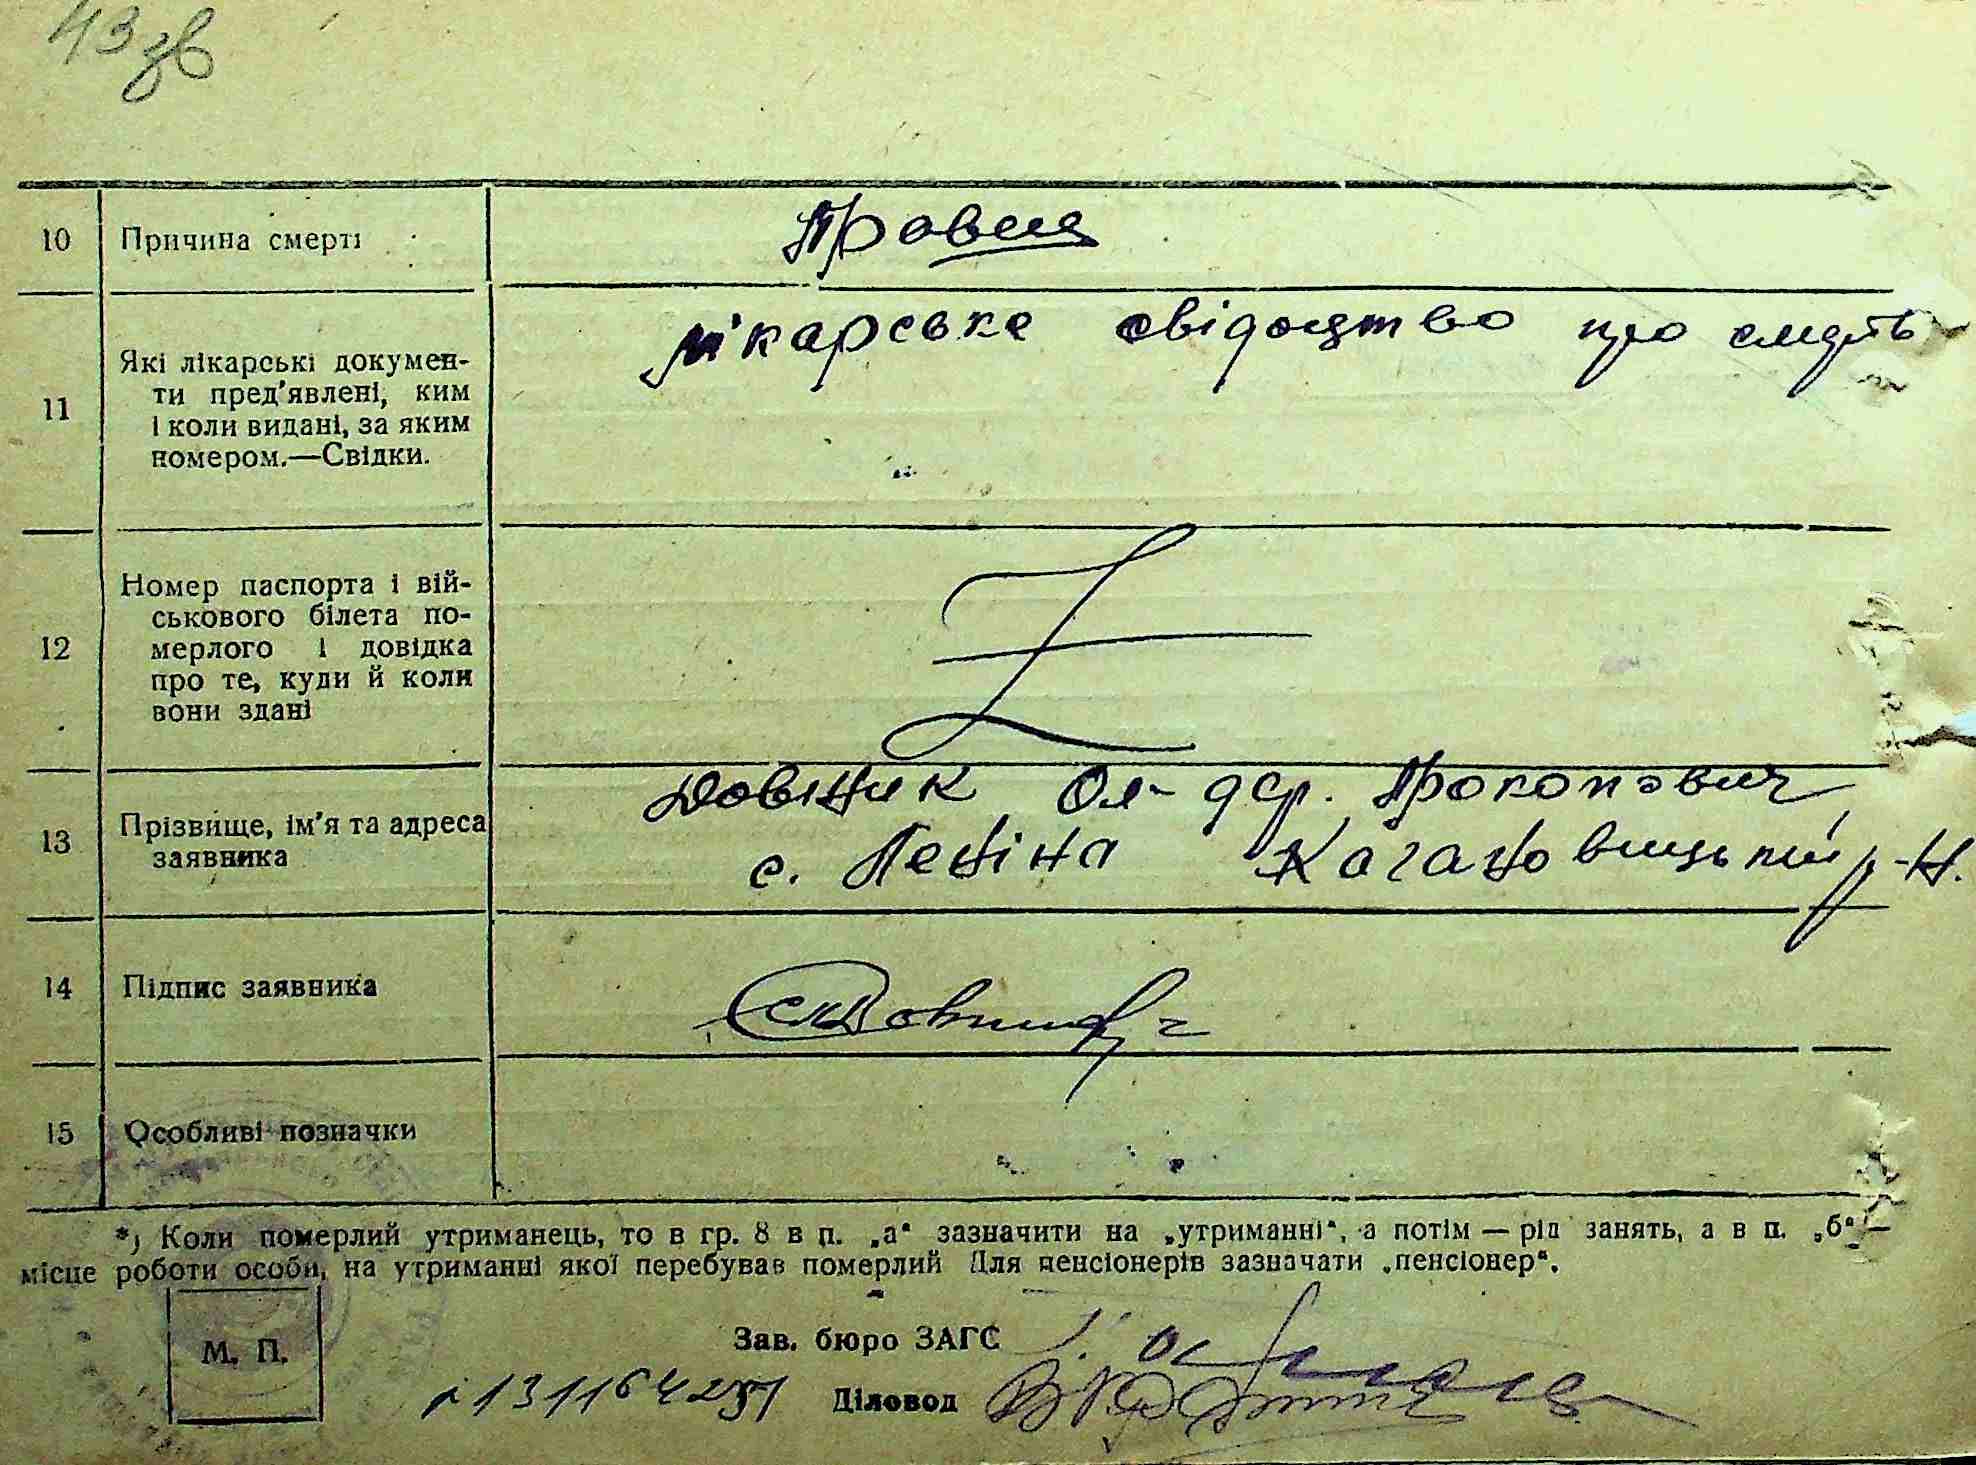 43 зв
10 Причина смерті Травма
11 Які лікарські докумен-
ти пред'явлені, ким
і коли видані, за яким
номером.—Свідки.
лікарське свідоцтво про смерть
12 Номер паспорта і вій-
ськового білета по-
мерлого і довідка
про те, куди й коли
вони здані
Z
13 Прізвище, ім'я та адреса
заявника
Довжик Ол-дср. Прокопович
с. Леніна Кагановицький р-н.
14 Підпис заявника
15 Особливі позначки
*) Коли померлий утриманець, то в гр. 8 в п. „а“ зазначити на „утриманні“, а потім — рід занять, а в п. „б“ —
місце роботи особи, на утриманні якої перебував померлий Для пенсіонерів зазначати „пенсіонер“.
М. П.
Зав. бюро ЗАГС
Діловод